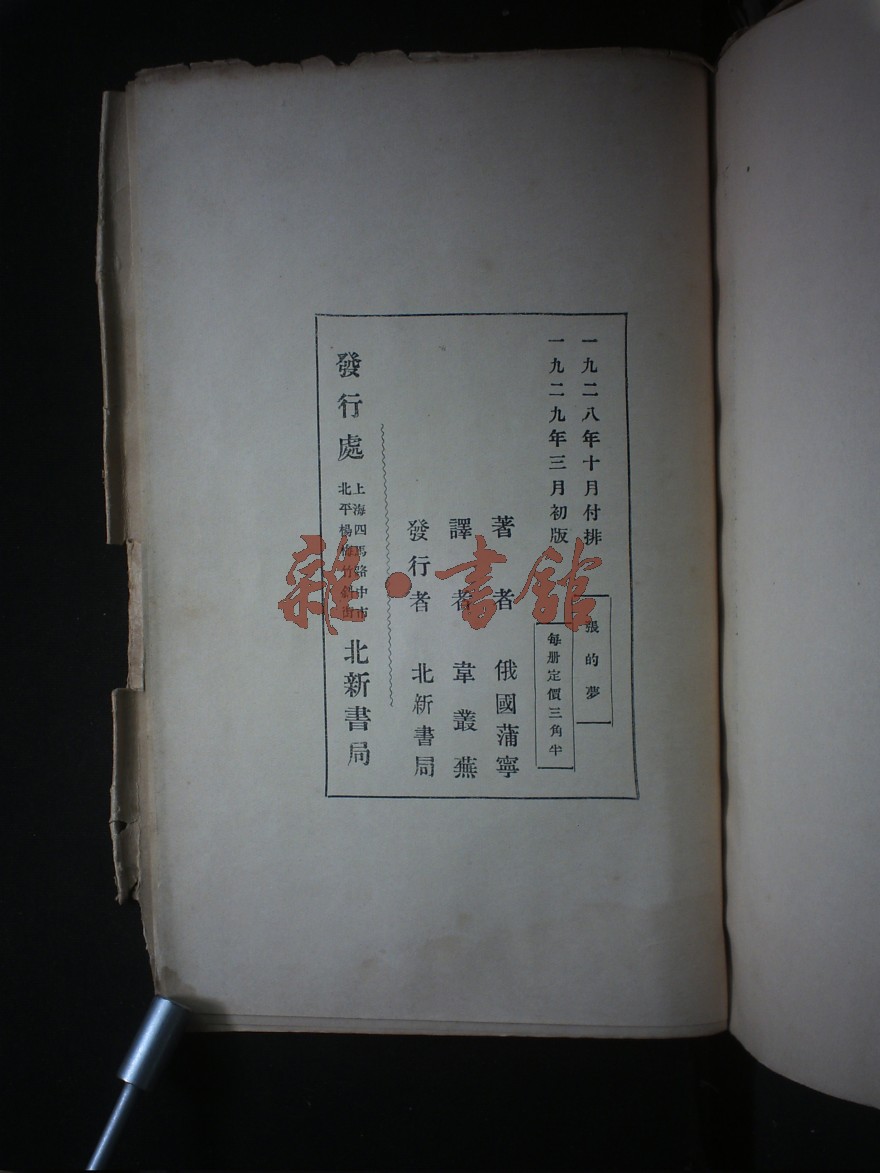 一九二八年十月付排
一九二九年三月初版
張的夢
每册定價三角半
著者 俄國蒲寧
譯者 韋叢蕪
發行者 北新書局
發行處 上海四馬路中市 北平楊梅竹斜街 北新書局
雜·書館